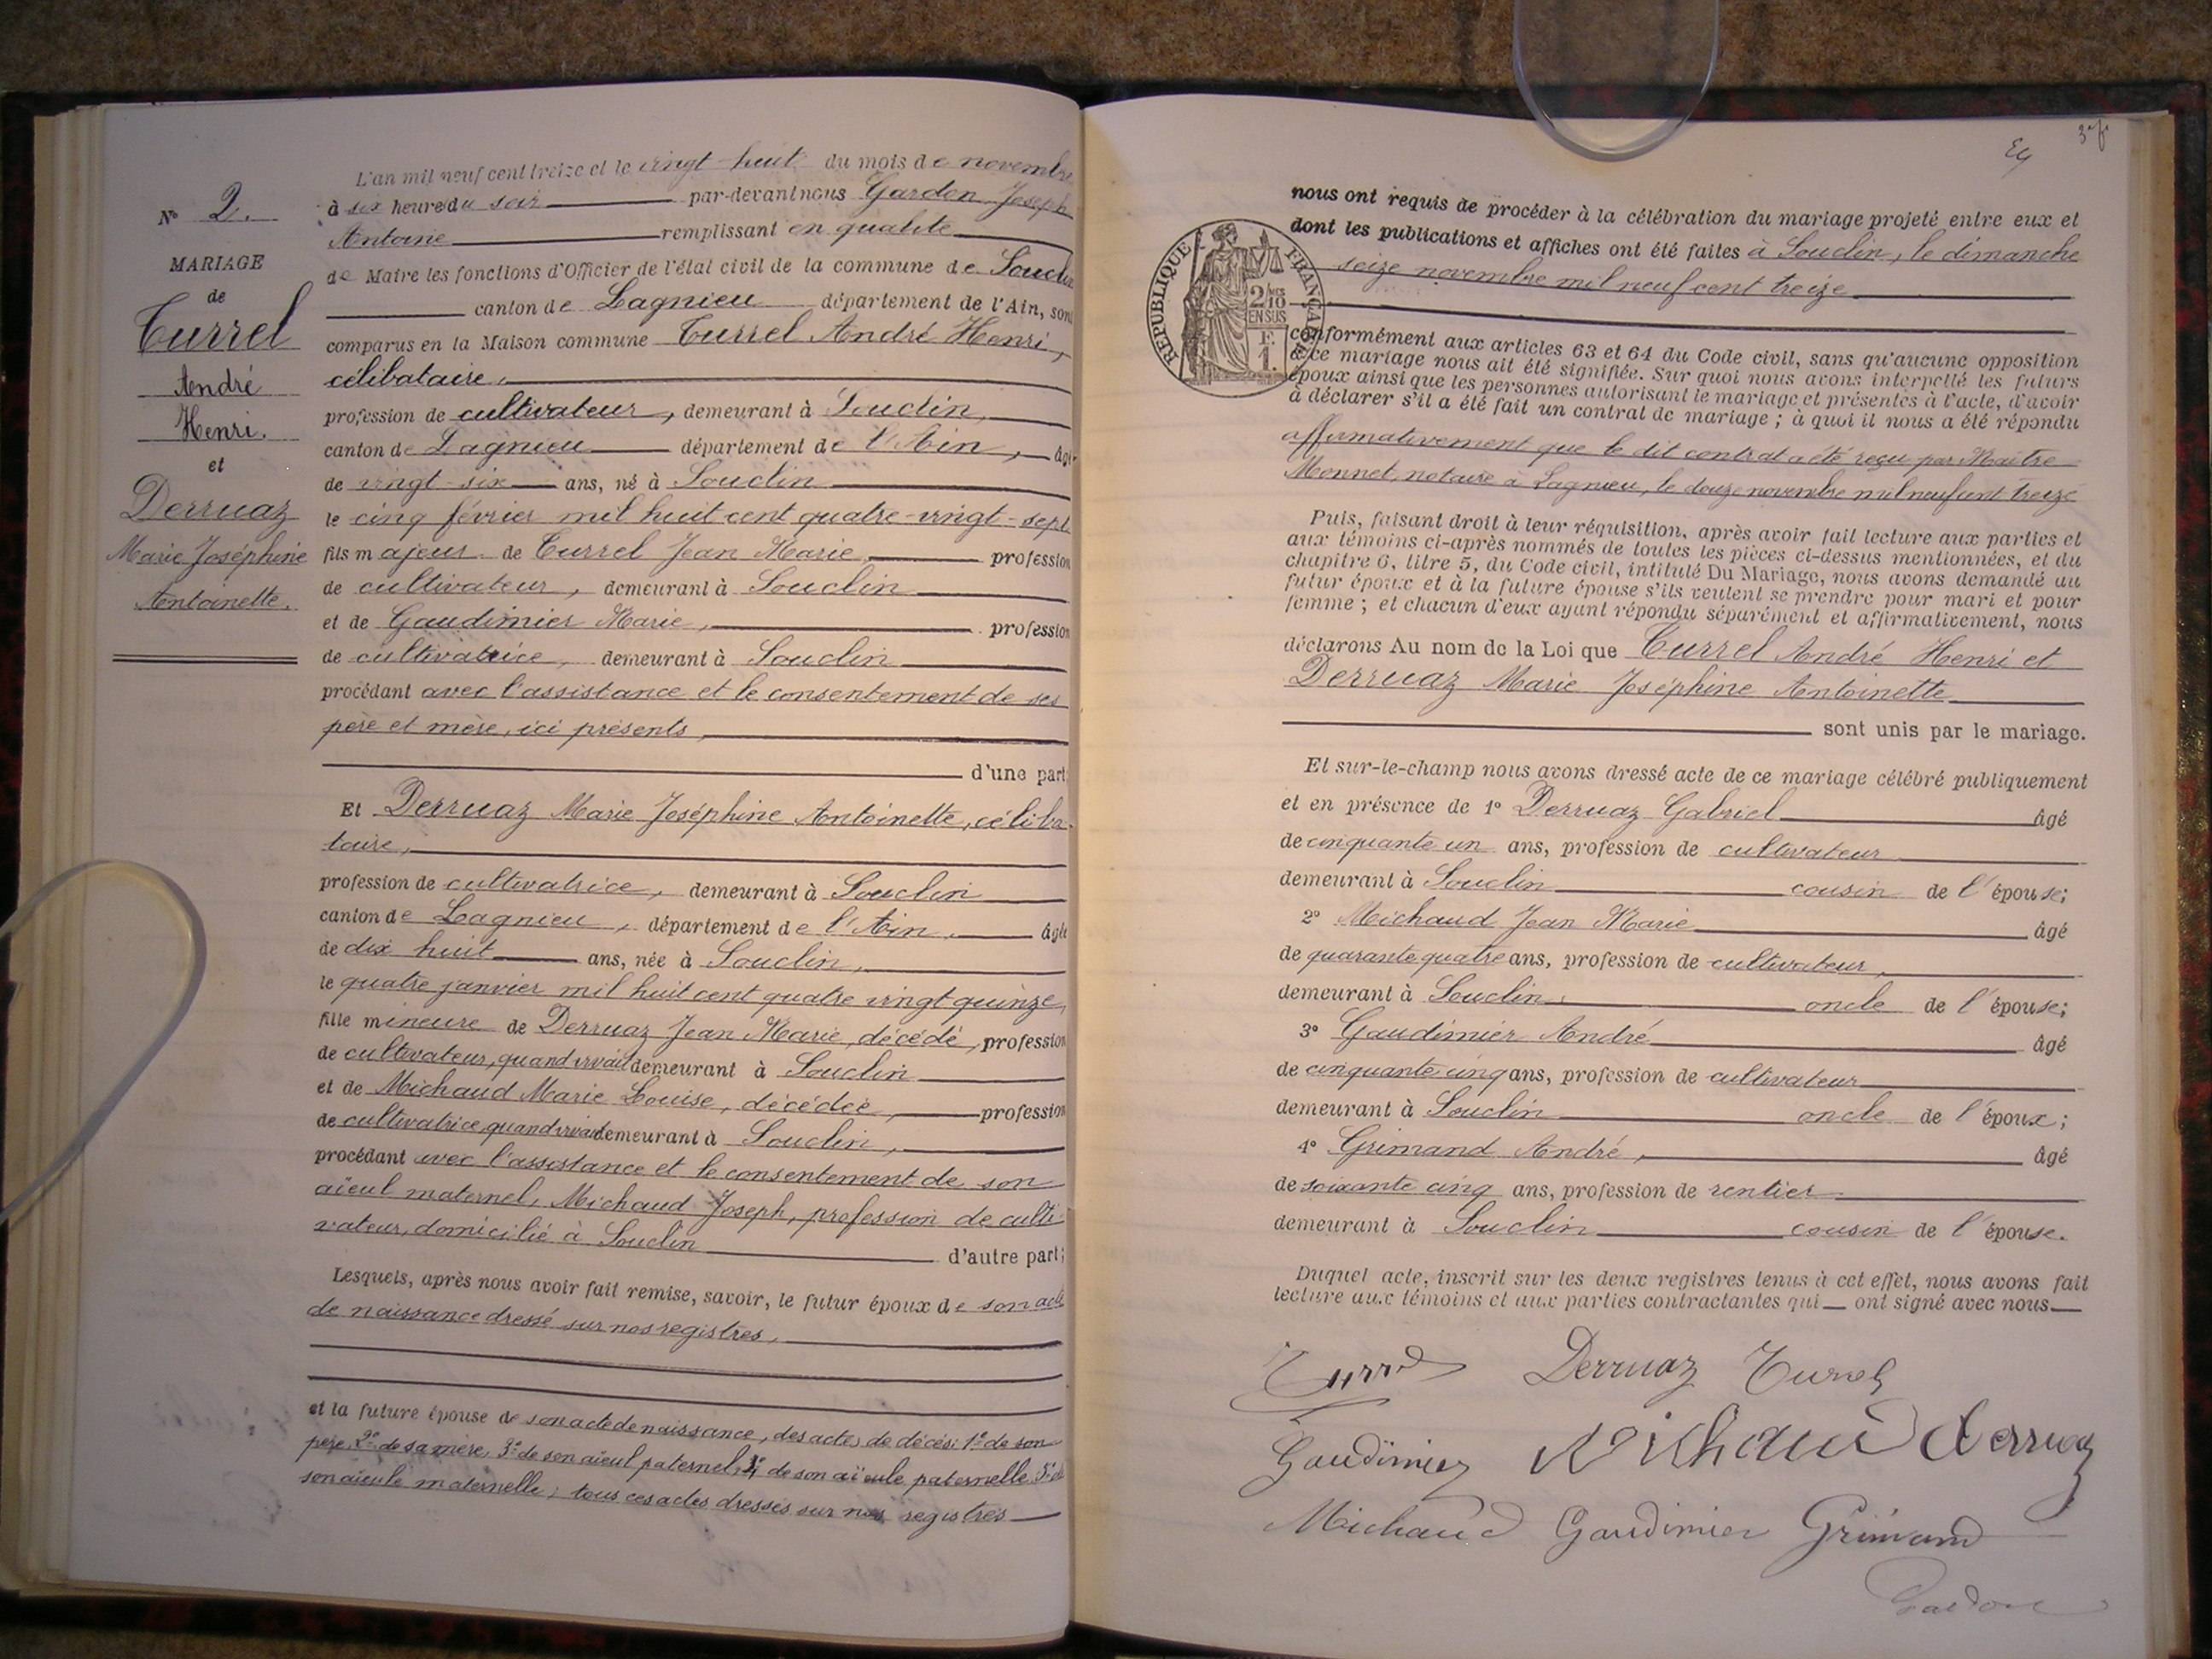 N° 2.
MARIAGE
de
Turrel
André
Henri.
et
Derruaz
Marie Joséphine
Antoinette.
L'an mil neuf cent treize et le vingt-huit du mois de novembre
à six heure du soir par-devant nous Gardon Joseph
Antoine remplissant en qualité
de Maire les fonctions d'Officier de l'état civil de la commune de Souclin
canton de Lagnieu département de l'Ain, sont
comparus en la Maison commune Turrel André Henri,
célibataire,
profession de cultivateur, demeurant à Souclin,
canton de Lagnieu département de l'Ain, âgé
de vingt-six ans, né à Souclin
le cinq février mil huit cent quatre-vingt-sept
fils majeur de Turrel Jean Marie, profession
de cultivateur, demeurant à Souclin
et de Gaudimier Marie, profession
de cultivatrice, demeurant à Souclin
procédant avec l'assistance et le consentement de ses
père et mère, ici présents,
d'une part;
Et Derruaz Marie Joséphine Antoinette, céliba-
taire,
profession de cultivatrice, demeurant à Souclin
canton de Lagnieu, département de l'Ain, âgée
de dix huit ans, née à Souclin,
le quatre janvier mil huit cent quatre vingt quinze,
fille mineure de Derruaz Jean Marie, décédé, profession
de cultivateur, quand vivait demeurant à Souclin
et de Michaud Marie Louise, décédée, profession
de cultivatrice, quand vivait demeurant à Souclin,
procédant avec l'assistance et le consentement de son
aïeul maternel, Michaud Joseph, profession de culti-
vateur, domicilié à Souclin d'autre part;
Lesquels, après nous avoir fait remise, savoir, le futur époux de son acte
de naissance dressé sur nos registres,
et la future épouse de son acte de naissance, des actes de décès: 1° de son
père, 2° de sa mère, 3° de son aïeul paternel, 4° de son aïeule paternelle 5° de
son aïeule maternelle; tous ces actes dressés sur nos registres
24
nous ont requis de procéder à la célébration du mariage projeté entre eux et
dont les publications et affiches ont été faites à Souclin, le dimanche
seize novembre mil neuf cent treize
RÉPUBLIQUE FRANÇAISE
2/10 EN SUS
F. 1.
conformément aux articles 63 et 64 du Code civil, sans qu'aucune opposition
à ce mariage nous ait été signifiée. Sur quoi nous avons interpellé les futurs
époux ainsi que les personnes autorisant le mariage et présentes à l'acte, d'avoir
à déclarer s'il a été fait un contrat de mariage; à quoi il nous a été répondu
affirmativement que le dit contrat a été reçu par Maître
Monnet, notaire à Lagnieu, le douze novembre mil neuf cent treize
Puis, faisant droit à leur réquisition, après avoir fait lecture aux parties et
aux témoins ci-après nommés de toutes les pièces ci-dessus mentionnées, et du
chapitre 6, titre 5, du Code civil, intitulé Du Mariage, nous avons demandé au
futur époux et à la future épouse s'ils veulent se prendre pour mari et pour
femme; et chacun d'eux ayant répondu séparément et affirmativement, nous
déclarons Au nom de la Loi que Turrel André Henri et
Derruaz Marie Joséphine Antoinette
sont unis par le mariage.
Et sur-le-champ nous avons dressé acte de ce mariage célébré publiquement
et en présence de 1° Derruaz Gabriel âgé
de cinquante un ans, profession de cultivateur
demeurant à Souclin cousin de l'épouse;
2° Michaud Jean Marie âgé
de quarante quatre ans, profession de cultivateur,
demeurant à Souclin, oncle de l'épouse;
3° Gaudimier André âgé
de cinquante cinq ans, profession de cultivateur
demeurant à Souclin oncle de l'époux;
4° Grimand André, âgé
de soixante cinq ans, profession de rentier
demeurant à Souclin cousin de l'épouse.
Duquel acte, inscrit sur les deux registres tenus à cet effet, nous avons fait
lecture aux témoins et aux parties contractantes qui ont signé avec nous
Turrel Derruaz Turrel
Gaudimier Michaud Derruaz
Michaud Gaudimier Grimand
Gardon